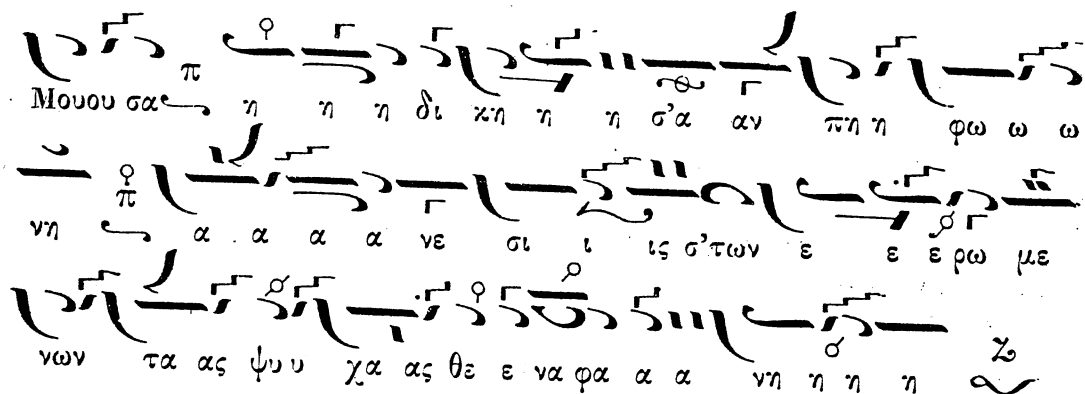 Μουου σα η η η δι κη η η σ'α αν πη η φω ω ω
νη α α α α νε σι ι ις σ'των ε ε ε ρω με
νων τα ας ψυ υ χα ας θε ε να φα α α νη η η η